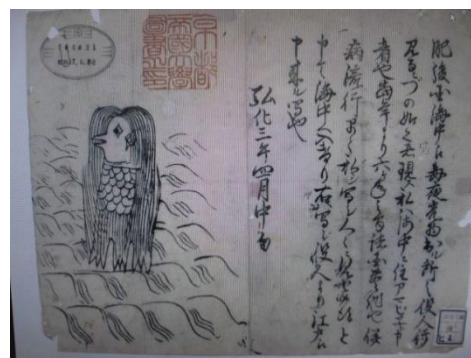 肥後国海中江毎夜光物出ル所之役人行
見るニづの如之者現ス私ハ海中ニ住アマビヱト申
者也当年より六ヶ年之間諸国豊作也併
病流行早々私シ写シ人々ニ見せ候得と
申て海中へ入けり右ハ写シ役人より江戸江
申来ル写也
弘化三年四月中旬
京都
帝國大學
圖書之印